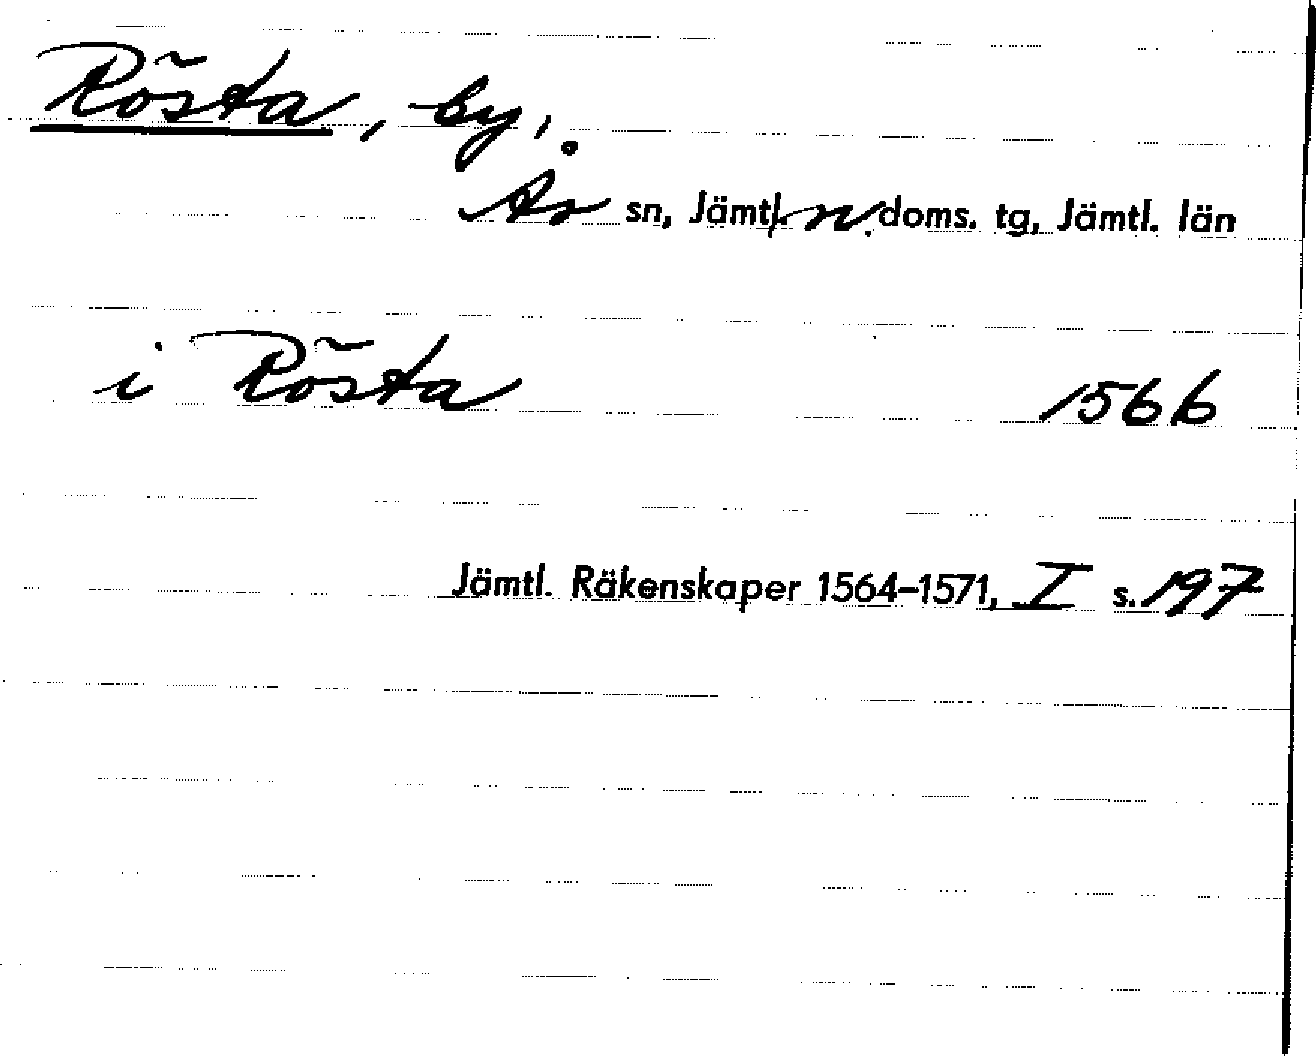 Rösta, by,
Ås sn, Jämtl. n. doms. tg, Jämtl. län
i Rösta 1566
Jämtl. Räkenskaper 1564–1571, I s. 197